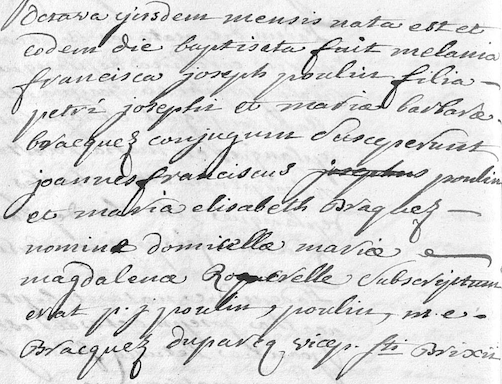 octava ejusdem mensis nata est et
eodem die baptisata fuit melania
francisca joseph poulin filia
petri josephi et mariæ barbaræ
bracquez conjugum susceperunt
joannes franciscus josephus poulin
et maria elisabeth Braquez
nomine domicellæ mariæ
magdalenæ subscriptum
erat p. j. poulin, poulin, m. e.
Bracquez duparcq vicep. sti Brixii